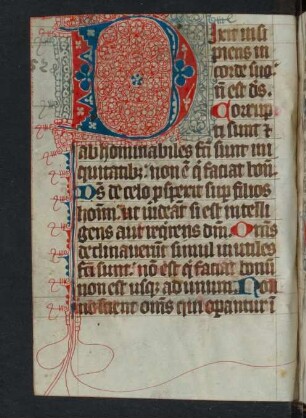 Dixit insi
piens in
corde suo
nō est ds̄.
Corrup
ti sunt ⁊
abhominabiles fc̄i sunt ini
quitatibꝫ: non ē q̇ faciat bonū
Dn̄s de celo ꝓspexit suꝑ filios
hoīm: ut uideat si est intelli
gens aut reqͥrens dm̄. Om̄s
declinauerūt simul inutiles
fc̄i sunt: nō est qͥ faciat bonū
non est usqꝫ ad unum. Non
ne scient om̄s qui opant̄ur ī